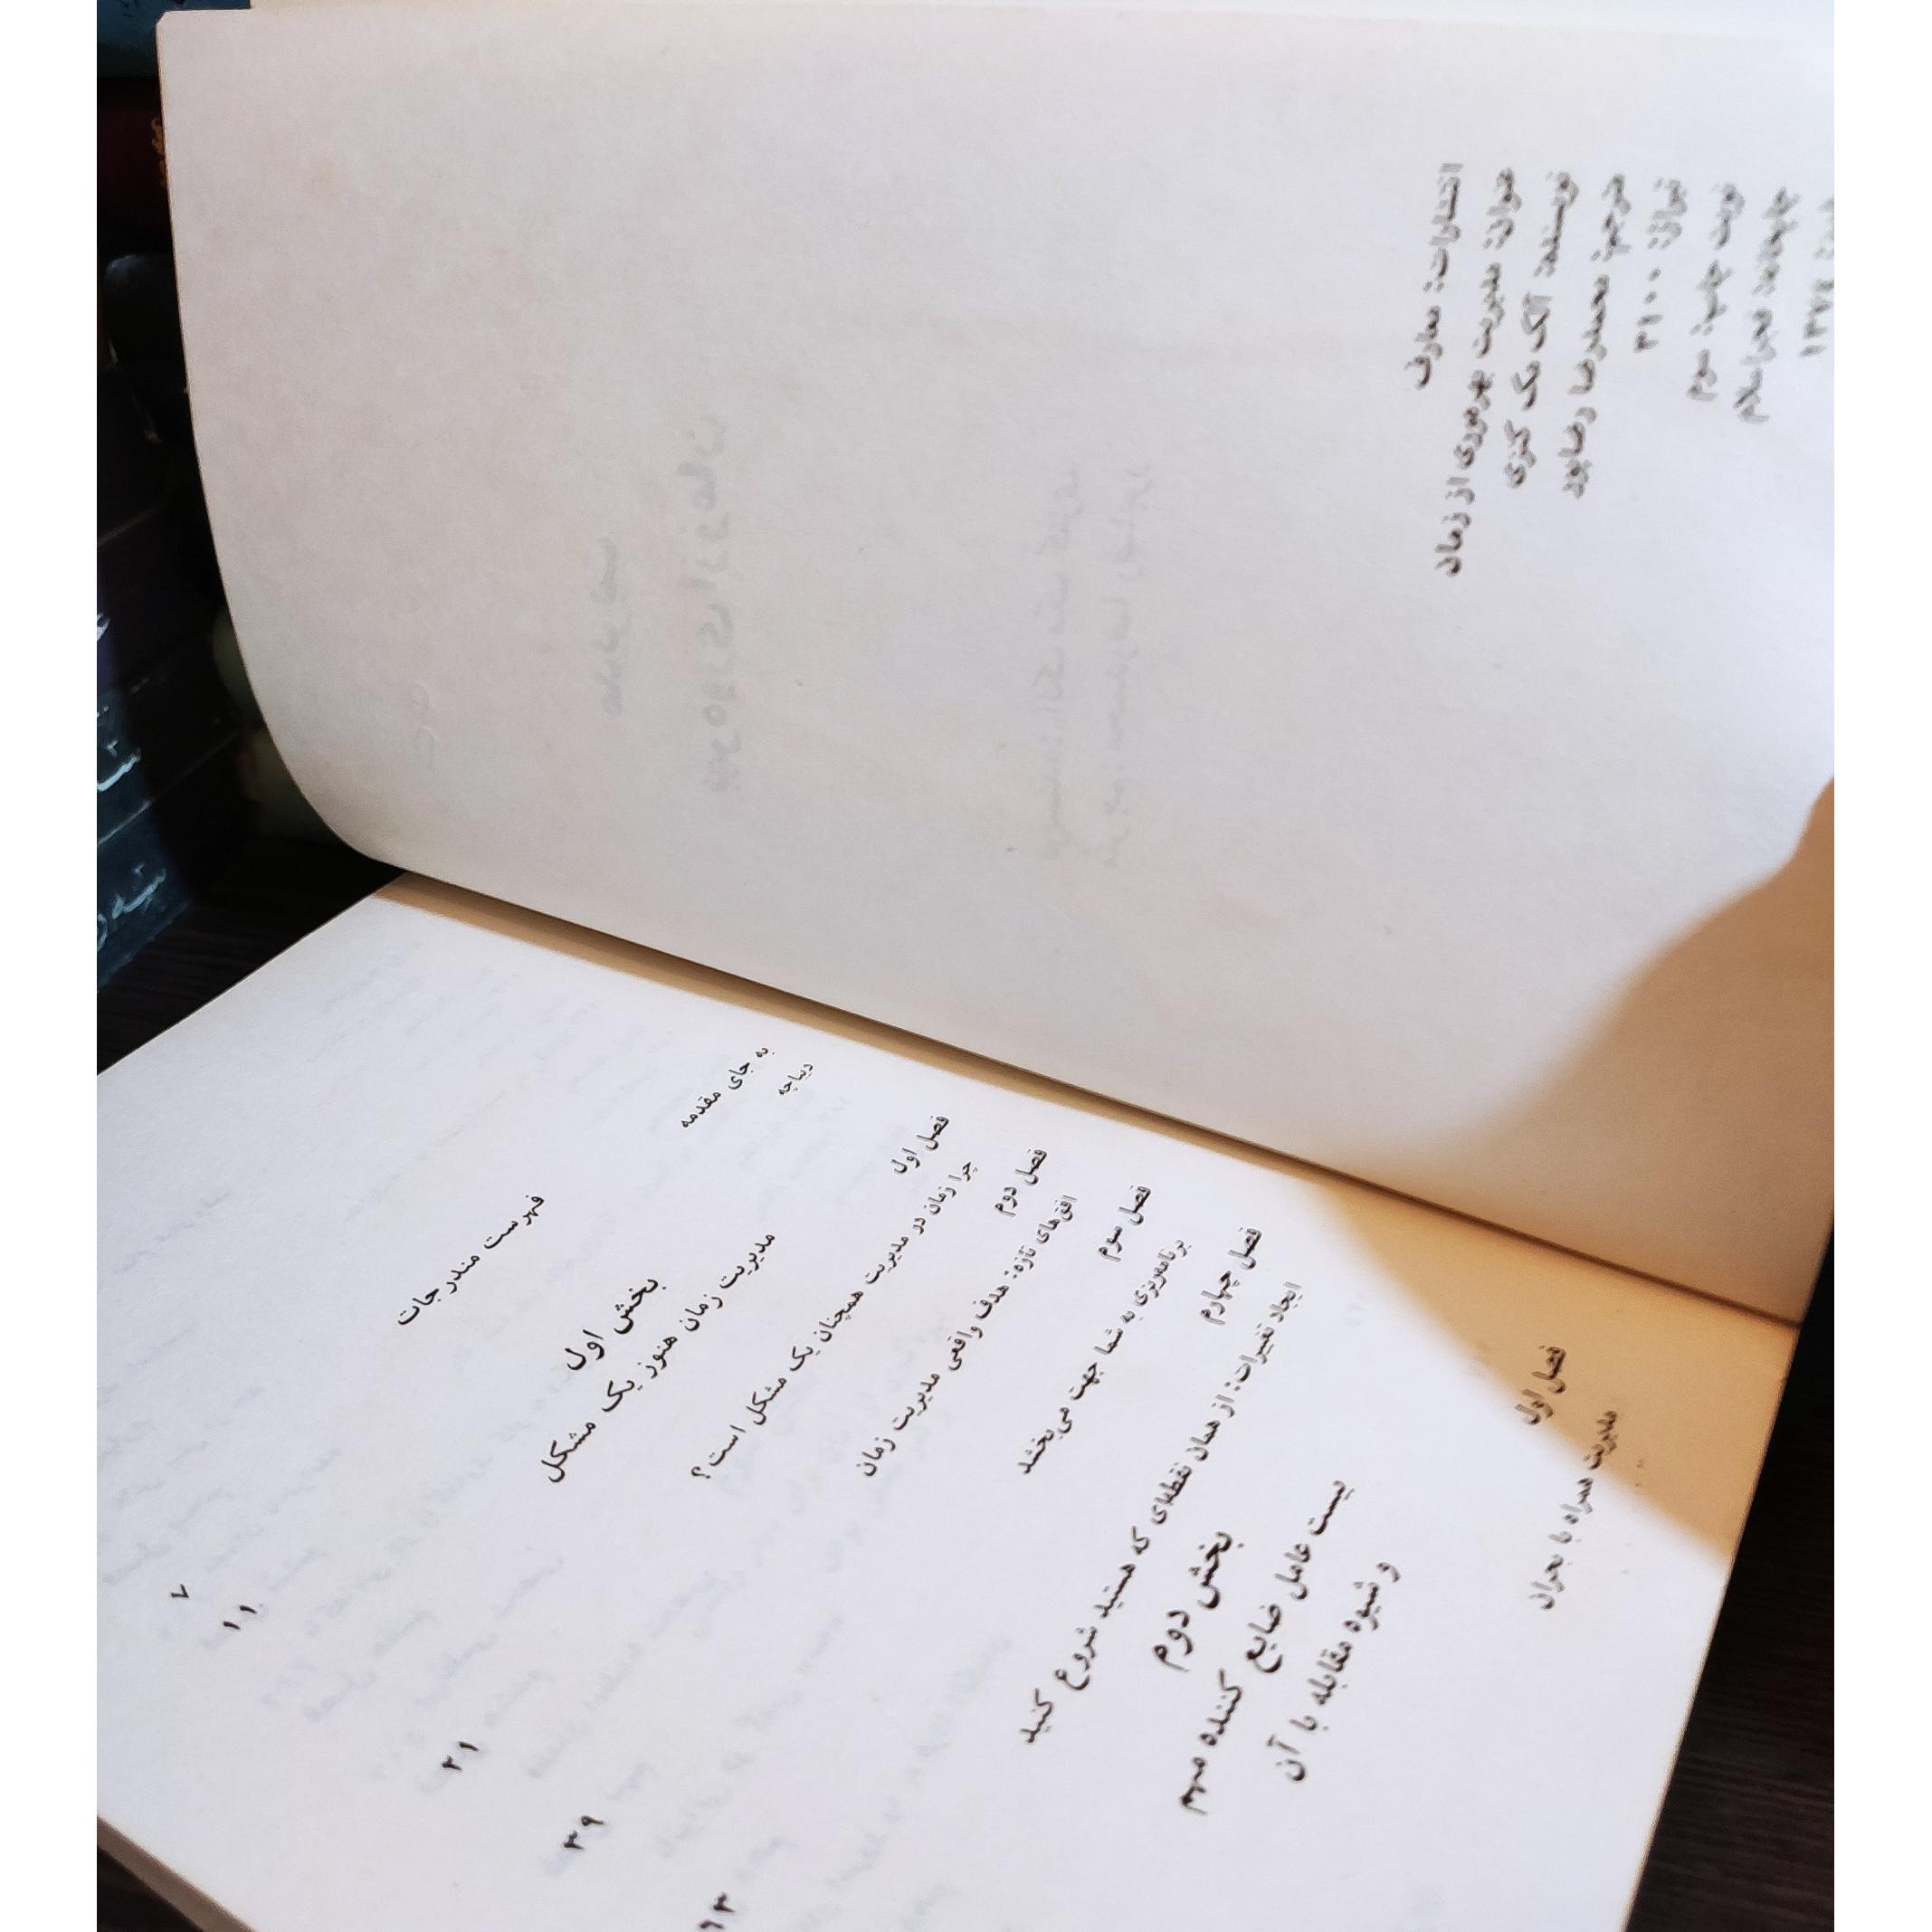 انتشارات: معارف
عنوان: مدیریت بهره‌وری از زمان
نویسنده: آلک مک کنزی
مترجم: محمدرضا رضاپور
تیراژ: ۳۱۰۰
نوبت چاپ: سوم
چاپخانه:
۱۳۷۴
فهرست مندرجات
به جای مقدمه ۷
دیباچه ۱۱
بخش اول
مدیریت زمان هنوز یک مشکل
فصل اول
چرا زمان در مدیریت همچنان یک مشکل است؟ ۲۱
فصل دوم
افق‌های تازه: هدف واقعی مدیریت زمان ۳۹
فصل سوم
برنامه‌ریزی به شما جهت می‌بخشد ۶۳
فصل چهارم
ایجاد تغییرات: از همان نقطه‌ای که هستید شروع کنید
بخش دوم
بیست عامل ضایع کننده مهم
و شیوه مقابله با آن
فصل اول
مدیریت همراه با بحران